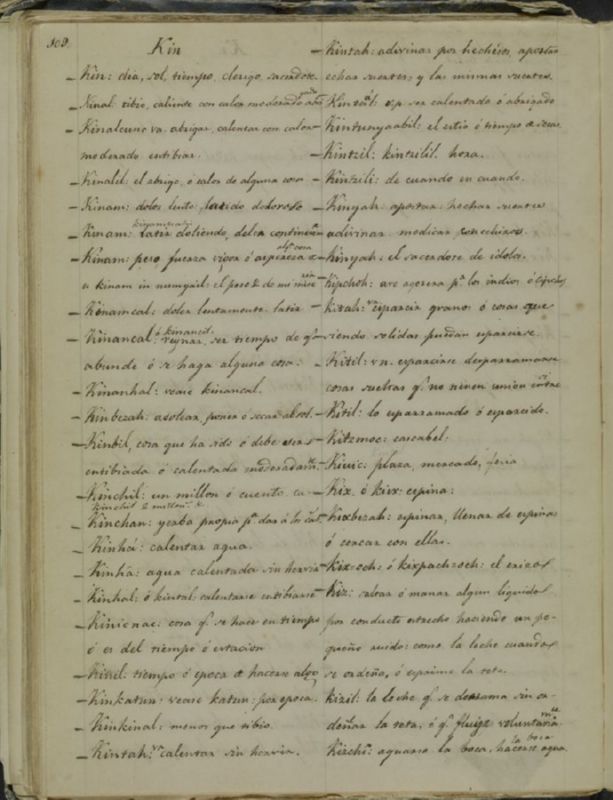 109.
Kin
– Kin: dia, sol, tiempo, clerigo, sacerdote.
– Kinal: tibio, caliente con calor moderado
– Kinalcunu va. abrigar, calentar con calor
moderado entibiar.
– Kinalil: el abrigo, ó calor de alguna cosa
– Kinam: dolor latido doloroso
– Kinam: latir doliendo, doler
– Kinam: peso fuerza vigor ó aspereza
alg.ª cosa
u kinam in numyail: el peso &
– Kinamcal: doler lentamente, latir
– Kinancal: ó kinancil. reynar, ser tiempo de q.e
abunde ó se haga alguna cosa:
– Kinanhal: vease kinancal.
– Kinbezah: asolear, poner ó secar al sol.
– Kinbil, cosa que ha sido ó debe ser
entibiada ó calentada moderadam.te
– Kinchil: un millon ó cuento.
– Kinchan: yerba propia p.ª dar á
– Kinhá: calentar agua.
– Kinha: agua calentada sin hervir
– Kinhal: ó kintal: calentarse entibiarse
– Kinicnac: cosa q.e se hace en tiempo
ó es del tiempo ó estacion
– Kinil: tiempo ó epoca de hacerse algo
– Kinkatun: vease katun: por epoca.
– Kinkinal: menos que tibio.
– Kintah: calentar sin hervir.
– Kintah: adivinar por hechizos, apostar
echar suertes, y las mismas suertes.
Kintal: ser calentado ó abrigado
– Kintunyaabil: el estio ó tiempo de secas
Kintzil: kintzilil. hora.
– Kintzili: de cuando en cuando.
– Kinyah: apostar: hechar suertes
adivinar medicar por echizos.
– Kinyah: el sacerdote de idolos.
– Kipchoh: ave agorera p.ª los indios
– kitah: esparcir granos ó cosas que
siendo solidas puedan esparcirse.
– Kitil: vn. esparcirse desparramarse
cosas sueltas q.e no tienen union entre
– Kitil: lo esparramado ó esparcido.
– Kitzmoc: cascabel.
– Kiuic: plaza, mercado, feria
– Kix. ó kiix: espina:
– Kixbezah: espinar, llenar de espinas
ó cercar con ellas.
– Kix-och: ó kixpach-och: el erizo
– Kiz: colar ó manar algun liquido
por conducto estrecho haciendo un pe-
queño ruido: como la leche cuando
se ordeña, ó esprime la teta.
kizil: la leche q.e se derrama sin or-
deñar la teta, ó q.e fluye
la boca
Kizchi: aguarse la boca, hacerse agua.